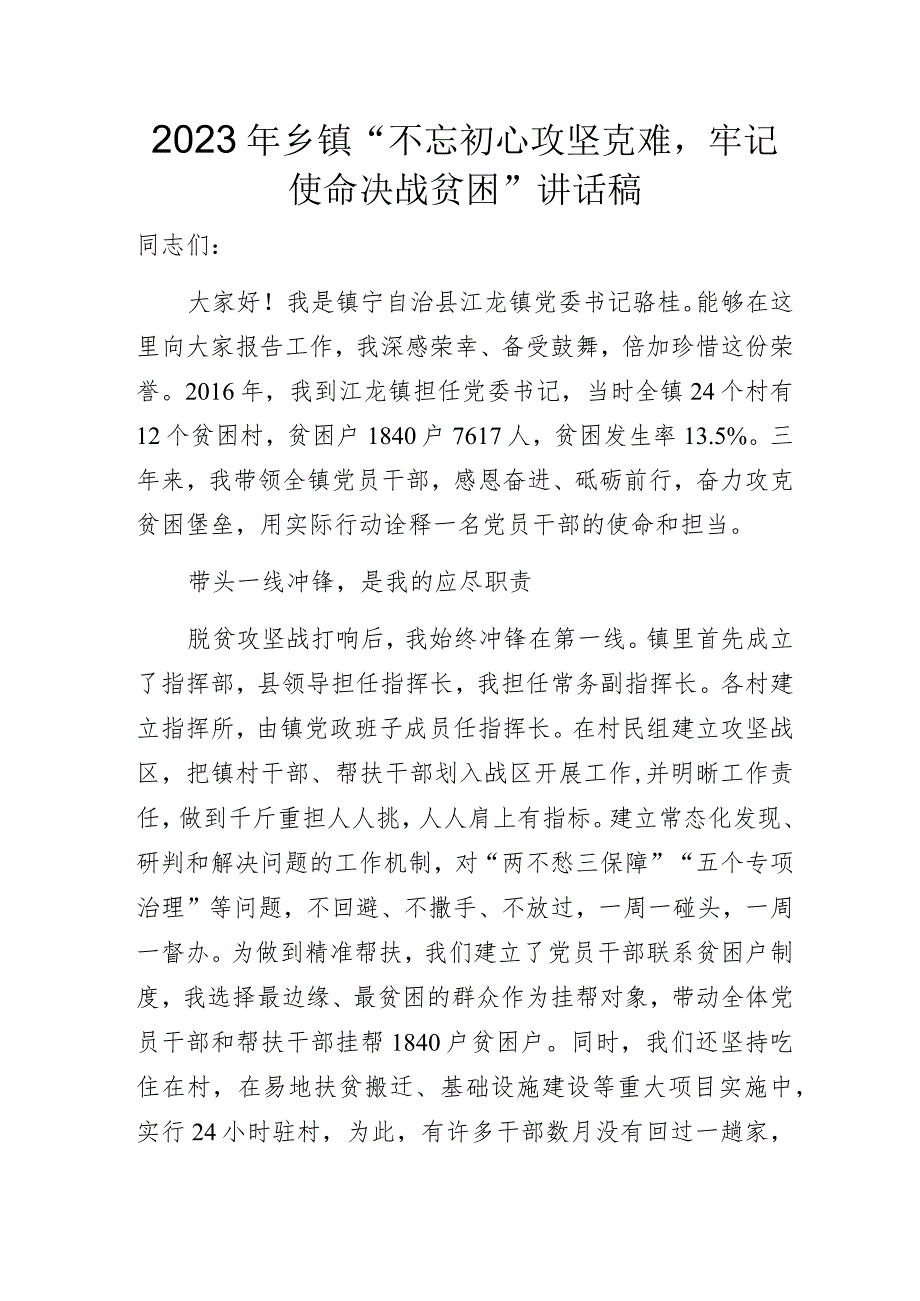 2023 年乡镇“不忘初心攻坚克难，牢记
使命决战贫困”讲话稿
同志们：
大家好！我是镇宁自治县江龙镇党委书记骆桂。能够在这
里向大家报告工作，我深感荣幸、备受鼓舞，倍加珍惜这份荣
誉。2016 年，我到江龙镇担任党委书记，当时全镇 24 个村有
12 个贫困村，贫困户 1840 户 7617 人，贫困发生率 13.5%。三
年来，我带领全镇党员干部，感恩奋进、砥砺前行，奋力攻克
贫困堡垒，用实际行动诠释一名党员干部的使命和担当。
带头一线冲锋，是我的应尽职责
脱贫攻坚战打响后，我始终冲锋在第一线。镇里首先成立
了指挥部，县领导担任指挥长，我担任常务副指挥长。各村建
立指挥所，由镇党政班子成员任指挥长。在村民组建立攻坚战
区，把镇村干部、帮扶干部划入战区开展工作,并明晰工作责
任，做到千斤重担人人挑，人人肩上有指标。建立常态化发现、
研判和解决问题的工作机制，对“两不愁三保障”“五个专项
治理”等问题，不回避、不撒手、不放过，一周一碰头，一周
一督办。为做到精准帮扶，我们建立了党员干部联系贫困户制
度，我选择最边缘、最贫困的群众作为挂帮对象，带动全体党
员干部和帮扶干部挂帮 1840 户贫困户。同时，我们还坚持吃
住在村，在易地扶贫搬迁、基础设施建设等重大项目实施中，
实行 24 小时驻村，为此，有许多干部数月没有回过一趟家，